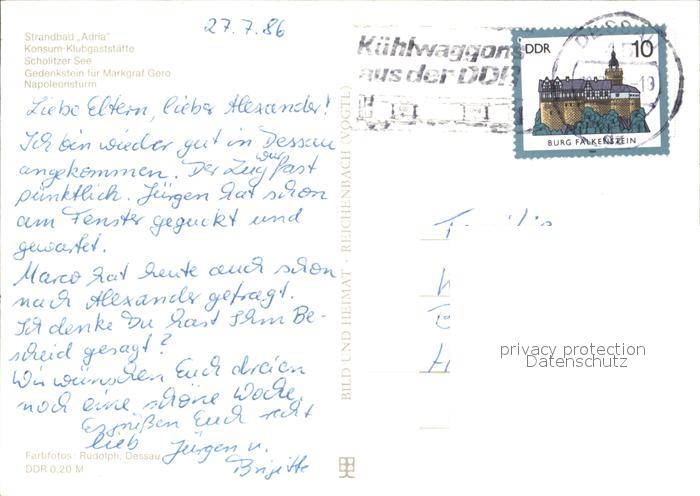 27.7.86
Strandbad „Adria"
Konsum-Klubgaststätte
Scholitzer See
Gedenkstein für Markgraf Gero
Napoleonsturm
Liebe Eltern, lieber Alexander!
Ich bin wieder gut in Dessau
angekommen. Der Zug war fast
pünktlich. Jürgen hat schon
am Fenster geguckt und
gewartet.
Marco hat heute auch schon
nach Alexander gefragt.
Ich denke Du hast Ihm Be-
scheid gesagt?
Wir wünschen Euch dreien
noch eine schöne Woche.
Es grüßen Euch recht
lieb Jürgen u.
Brigitte
Farbfotos: Rudolph, Dessau
DDR 0,20 M
BILD UND HEIMAT · REICHENBACH (VOGTL)
Kühlwaggons
aus der DDR
DDR 10
BURG FALKENSTEIN
DESSAU
privacy protection
Datenschutz